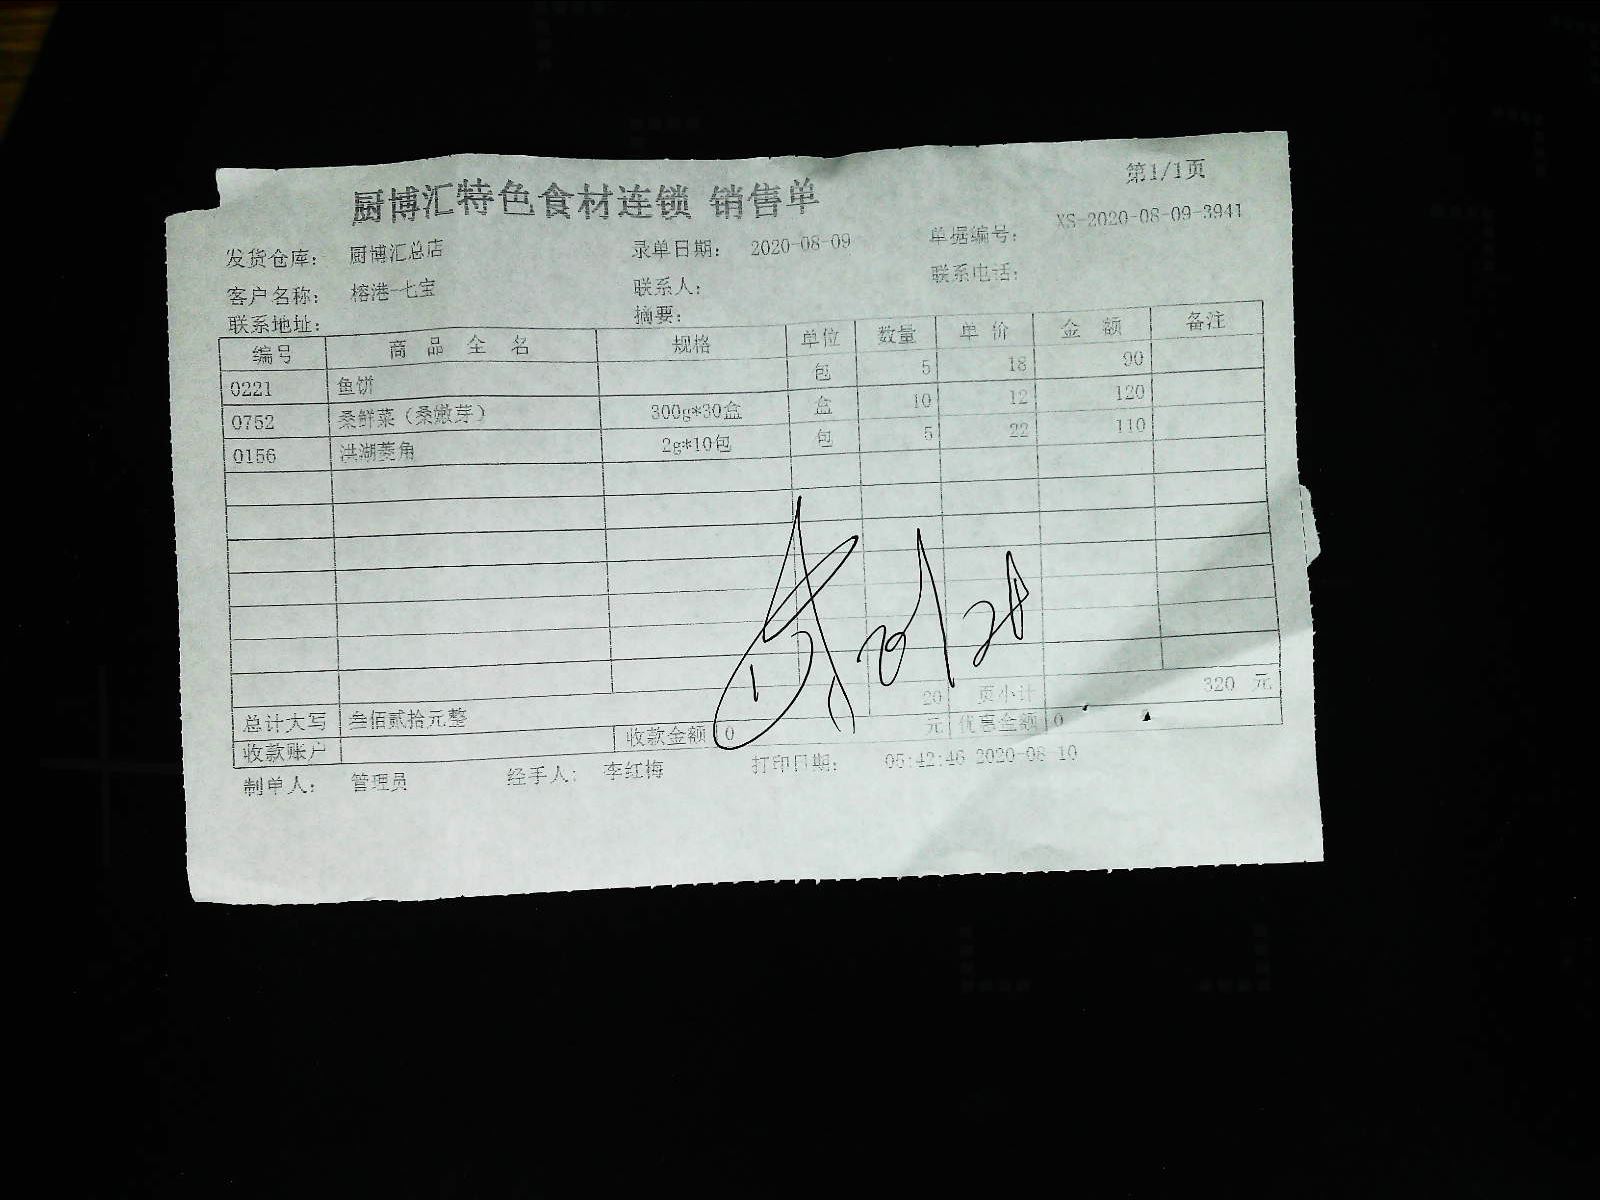 厨博汇特色食材连锁 销售单
第1/1页
发货仓库： 厨博汇总店 录单日期： 2020-08-09 单据编号： XS-2020-08-09-3941
客户名称： 榕港-七宝 联系人： 联系电话：
联系地址： 摘要：
编号 商品全名 规格 单位 数量 单价 金额 备注
0221 鱼饼 包 5 18 90
0752 桑鲜菜（桑嫩芽） 300g*30盒 盒 10 12 120
0156 洪湖菱角 2g*10包 包 5 22 110
20 页小计 320 元
总计大写 叁佰贰拾元整
收款账户 收款金额 0 元 优惠金额 0
制单人： 管理员 经手人： 李红梅 打印日期： 05:42:46 2020-08-10